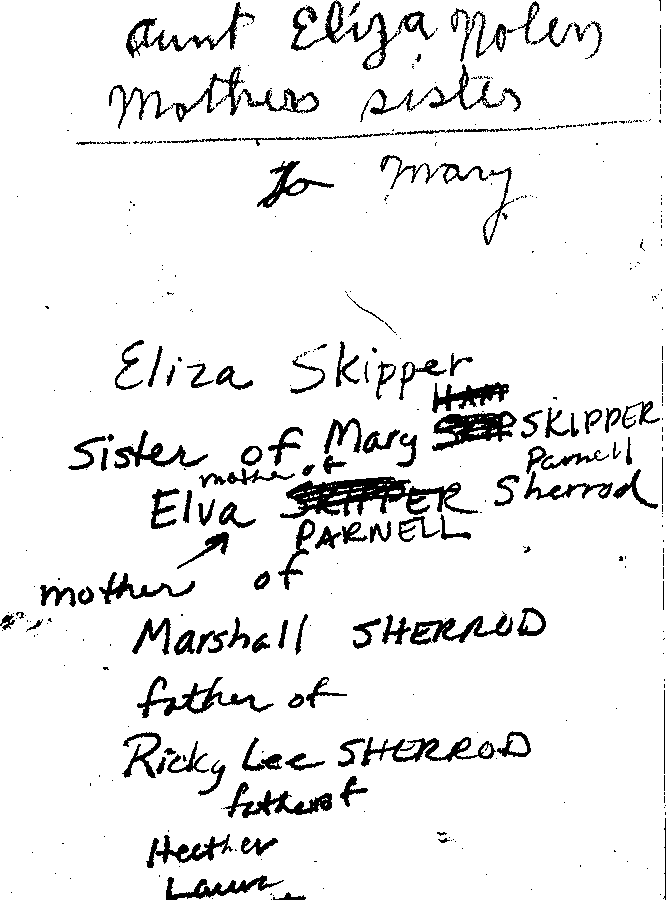 Aunt Eliza Nolen
Mothers sister
To Mary
Eliza Skipper
HAM
Sister of Mary SKIPPER
mother of Parnell
Elva SKIPPER Sherrod
PARNELL
mother of
Marshall SHERROD
father of
Ricky Lee SHERROD
father of
Heather
Laura